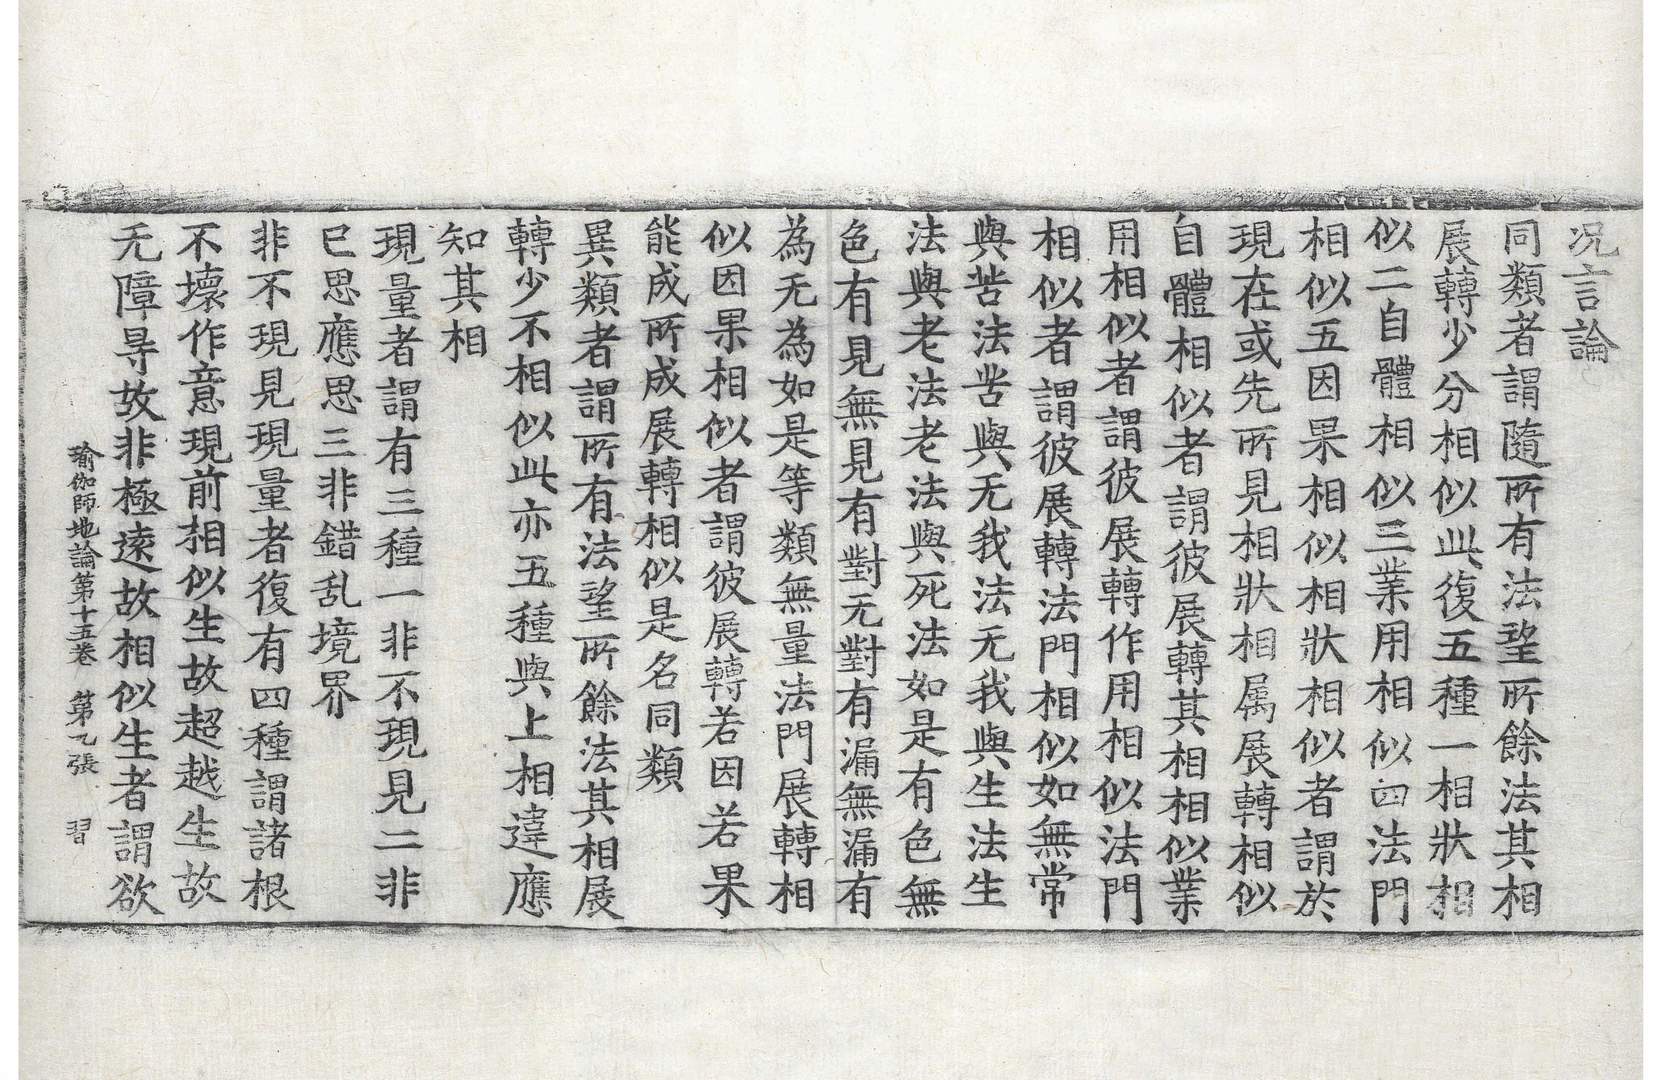 况言論
同類者謂隨所有法望所餘法其相
展轉少分相似此復五種一相狀相
似二自體相似三業用相似四法門
相似五因果相似相狀相似者謂於
現在或先所見相狀相属展轉相似
自體相似者謂彼展轉其相相似業
用相似者謂彼展轉作用相似法門
相似者謂彼展轉法門相似如無常
與苦法苦與无我法无我與生法生
法與老法老法與死法如是有色無
色有見無見有對无對有漏無漏有
為无為如是等類無量法門展轉相
似因果相似者謂彼展轉若因若果
能成所成展轉相似是名同類
異類者謂所有法望所餘法其相展
轉少不相似此亦五種與上相違應
知其相
現量者謂有三種一非不現見二非
已思應思三非錯乱境界
非不現見現量者復有四種謂諸根
不壞作意現前相似生故超越生故
无障㝵故非極遠故相似生者謂欲
瑜伽師地論第十五卷 第九張 習